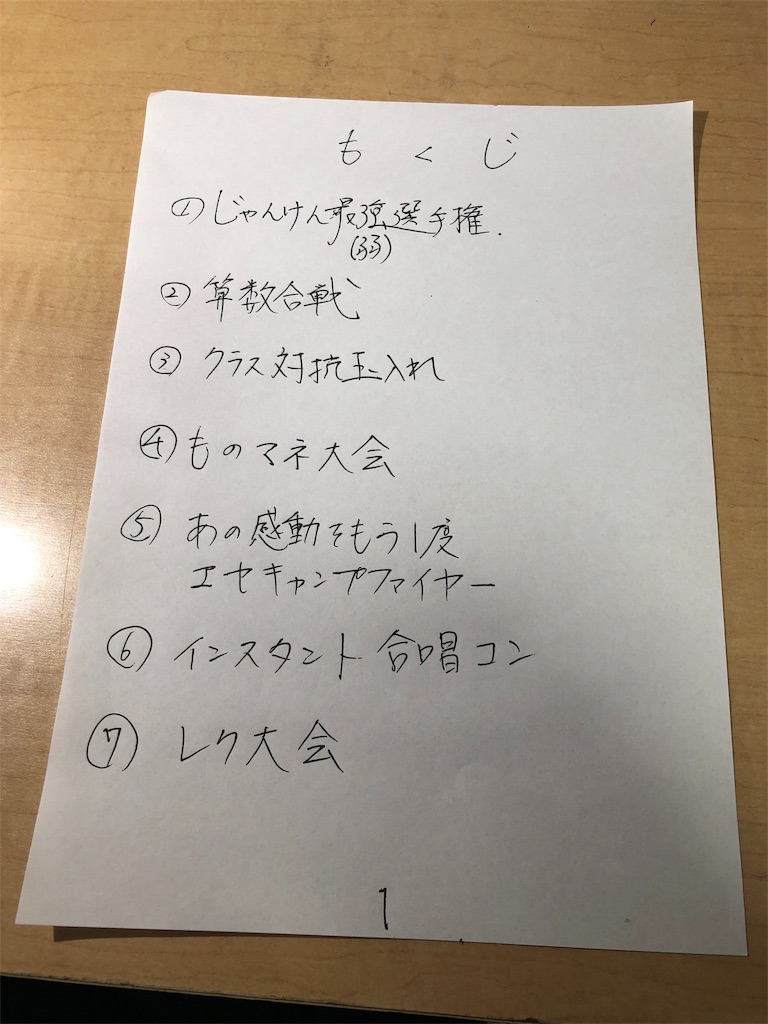 もくじ
①じゃんけん最強選手権.
(弱)
② 算数合戦
③ クラス対抗玉入れ
④ ものマネ大会
⑤ あの感動をもう1度
エセキャンプファイヤー
⑥ インスタント合唱コン
⑦ レク大会
1